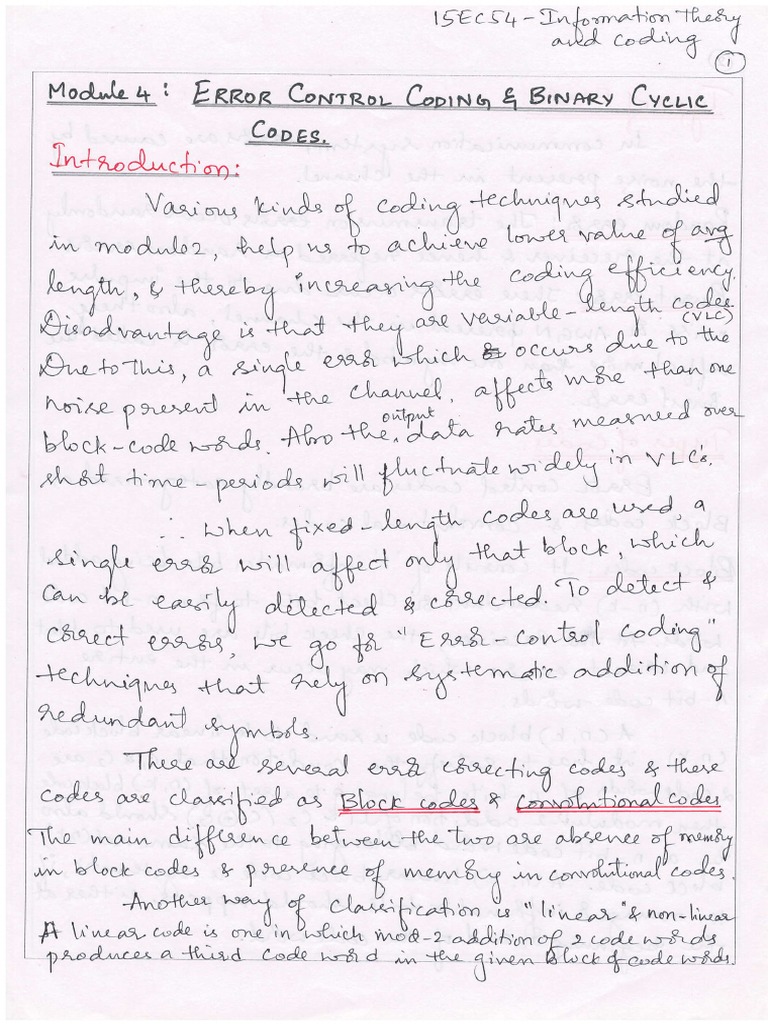 15EC54 - Information Theory
and Coding
1
Module 4 : ERROR CONTROL CODING & BINARY CYCLIC
CODES.
Introduction:
Various kinds of coding techniques studied
in module2, help us to achieve lower value of avg
length, & thereby increasing the coding efficiency.
Disadvantage is that they are variable-length codes
(VLC)
Due to this, a single error which occurs due to the
noise present in the channel, affects more than one
block-code words. Also the output data rates measured over
short time-periods will fluctuate widely in VLCs.
∴ when fixed-length codes are used, a
single error will affect only that block, which
can be easily detected & corrected. To detect &
correct errors, we go for "Error-control coding"
techniques that rely on systematic addition of
redundant symbols.
There are several error correcting codes & these
codes are classified as Block codes & Convolutional codes
The main difference between the two are absence of memory
in block codes & presence of memory in convolutional codes.
Another way of classification is "linear" & non-linear
A linear code is one in which mod-2 addition of 2 code words
produces a third code word in the given block of code words.